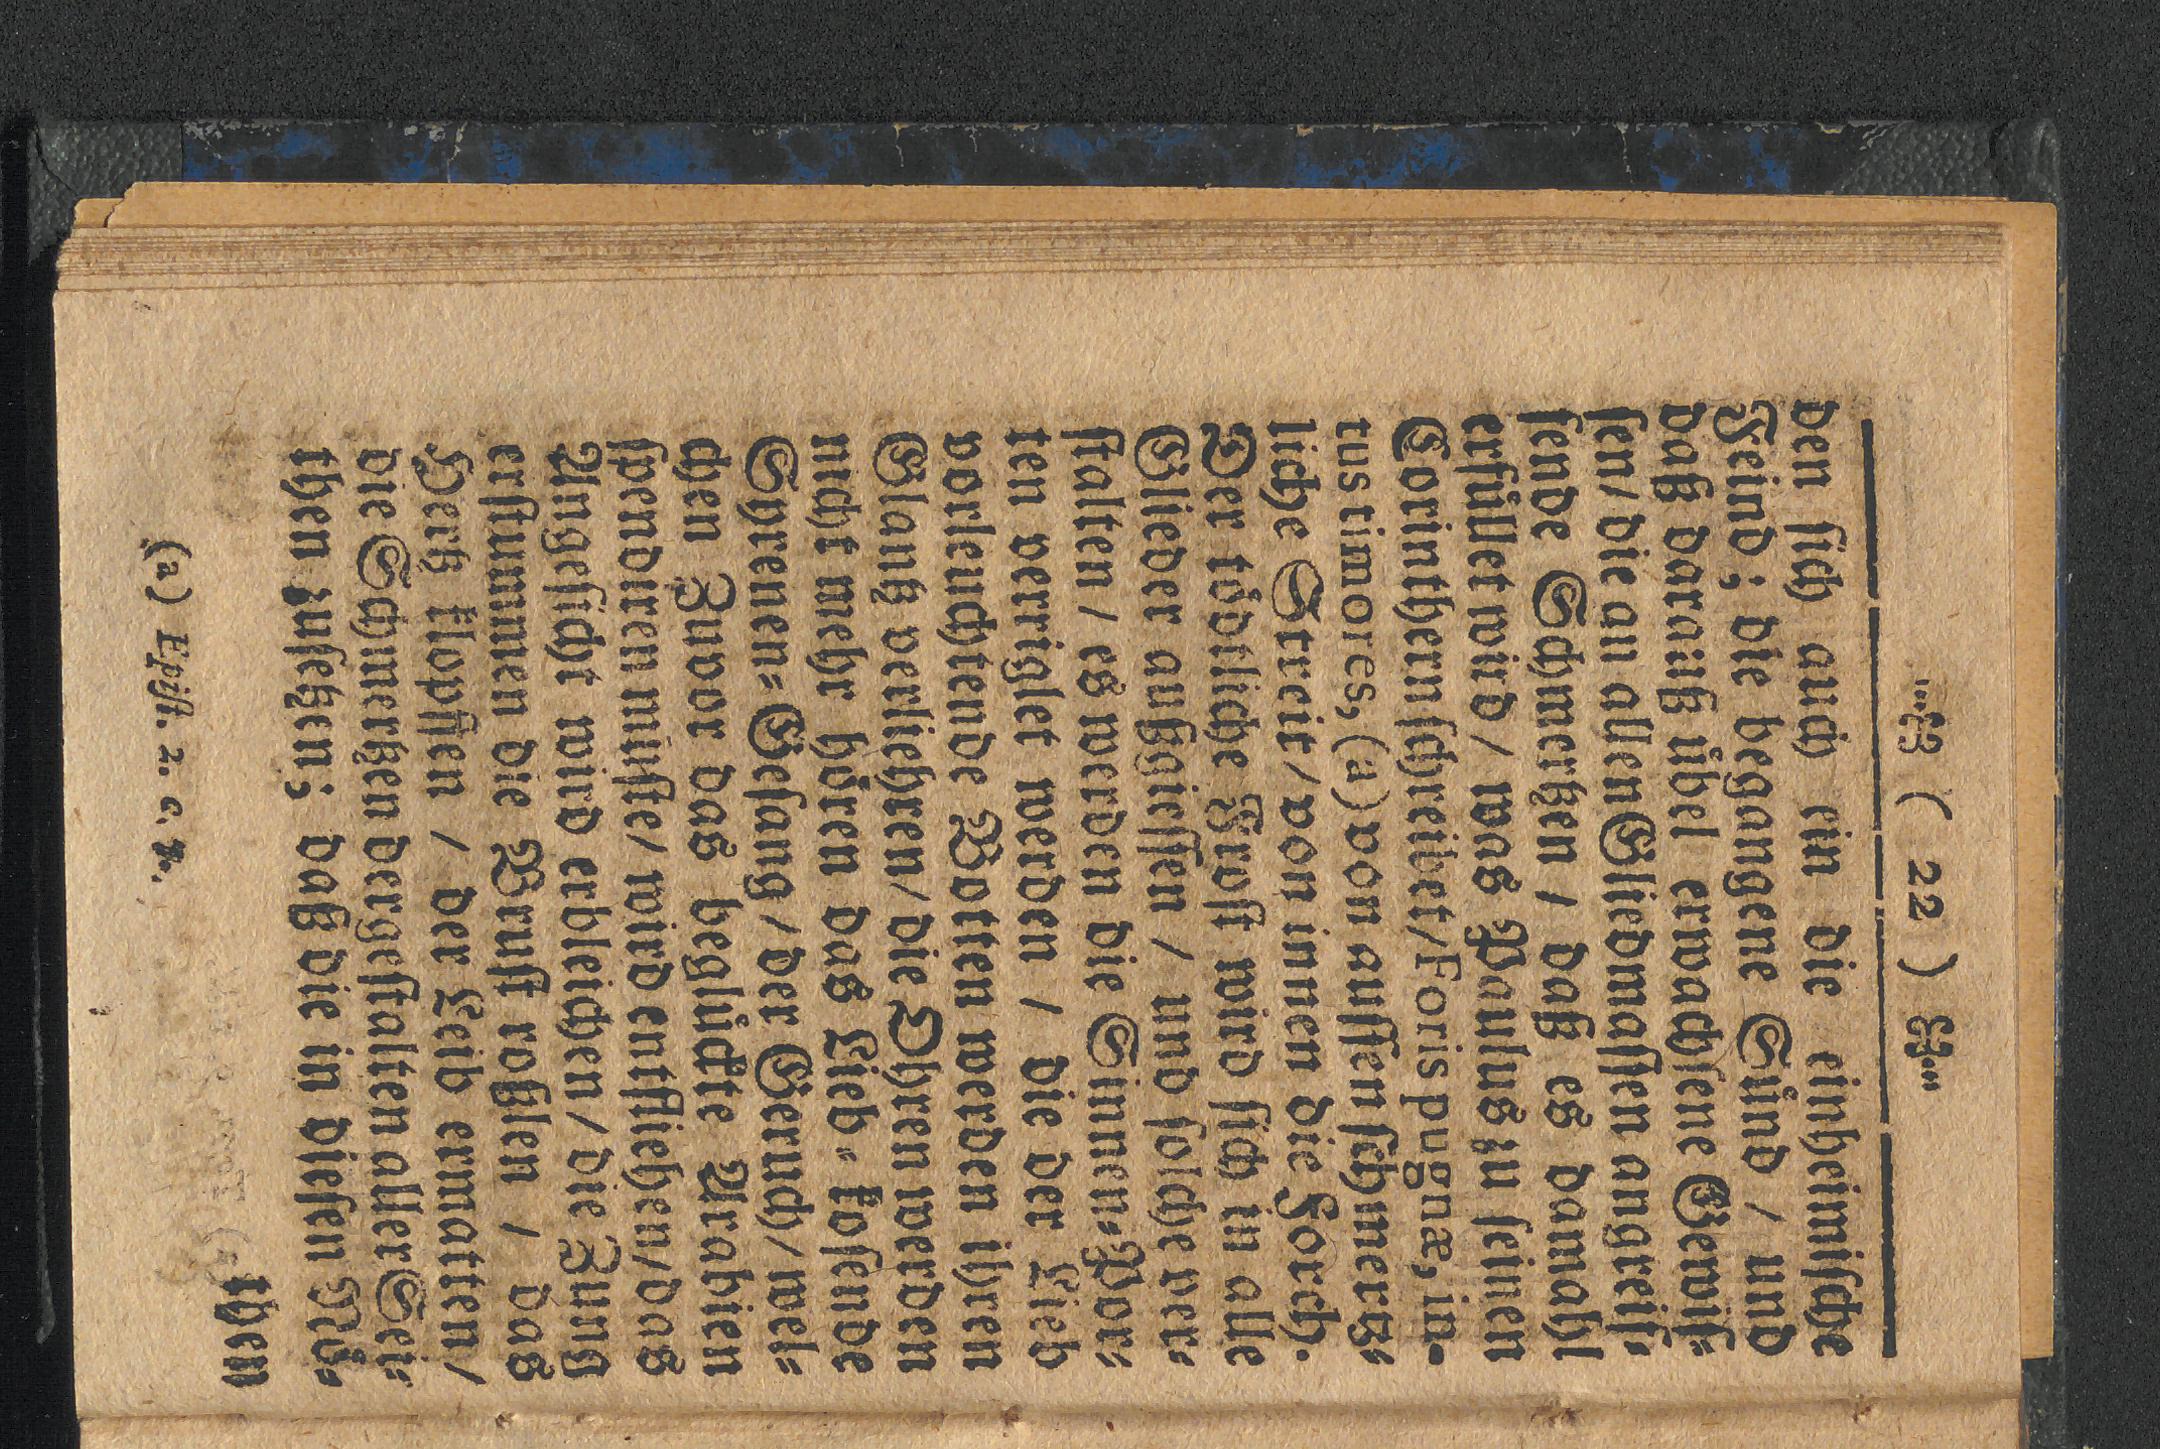 ( 22 )
den sich auch ein die einheimische
Feind; die begangene Sünd / und
daß darauß übel erwachsene Gewiſ⸗
sen/ die an allen Gliedmassen angreif⸗
fende Schmertzen / daß es damahl
erfüllet wird / was Paulus zu seinen
Corinthern schreibet/ Foris pugnæ, in-
tus timores, (a) von aussen schmertz⸗
liche Streit/ von innen die Forcht.
Der tödtliche Frost wird sich in alle
Glieder außgiessen / und solche ver⸗
stalten / es werden die Sinnen⸗Por⸗
ten verriglet werden / die der Lieb
vorleuchtende Potten werden ihren
Glantz verliehren/ die Ohren werden
nicht mehr hören das Lieb⸗kosende
Syrenen⸗Gesang/ der Geruch/ wel⸗
chen Zuvor das beglückte Arabien
spendiren muste/ wird entfliehen/ das
Angesicht wird erbleichen/ die Zung
erstummen die Brust roßlen / das
Hertz klopffen / der Leib ermatten/
die Schmertzen dergestalten aller Sei⸗
then zusetzen; daß die in diesen Nö⸗
then
(a) Epist. 2. c. 7.